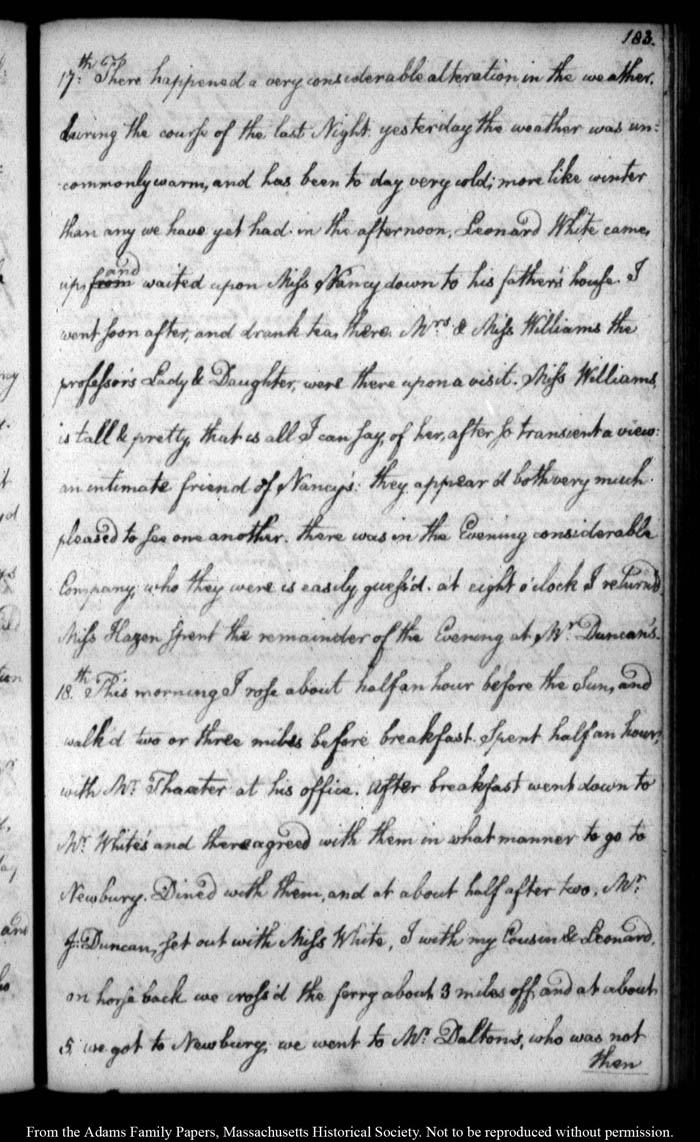 183.
17.th There happened a very considerable alteration in the weather,
during the course of the last Night. yesterday the weather was un:
commonly warm, and has been to day very cold; more like winter
than any we have yet had. in the afternoon, Leonard White came,
up, from and waited upon Miss Nancy down to his father's house. I
went soon after, and drank tea, there. Mrs. & Miss Williams the
professor's Lady & Daughter, were there upon a visit. Miss Williams,
is tall & pretty, that is all I can say, of her, after so transient a view:
an intimate friend of Nancy's: they appear'd both very much
pleased to see one another. there was in the Evening considerable
Company; who they were is easily guess'd. at eight o'clock I returned
Miss Hazen spent the remainder of the Evening at Mr. Duncan's.
18.th This morning I rose about half an hour before the Sun, and
walk'd two or three miles before breakfast. Spent half an hour,
with Mr. Thaxter at his office. After breakfast went down to
Mr. White's and there agreed with them in what manner to go to
Newbury. Dined with them, and at about half after two. Mr.
J: Duncan, set out with Miss White, I with my Cousin & Leonard,
on horse back we cross'd the ferry about 3 miles off, and at about
5 we got to Newbury, we went to Mr. Dalton's, who was not
then
From the Adams Family Papers, Massachusetts Historical Society. Not to be reproduced without permission.